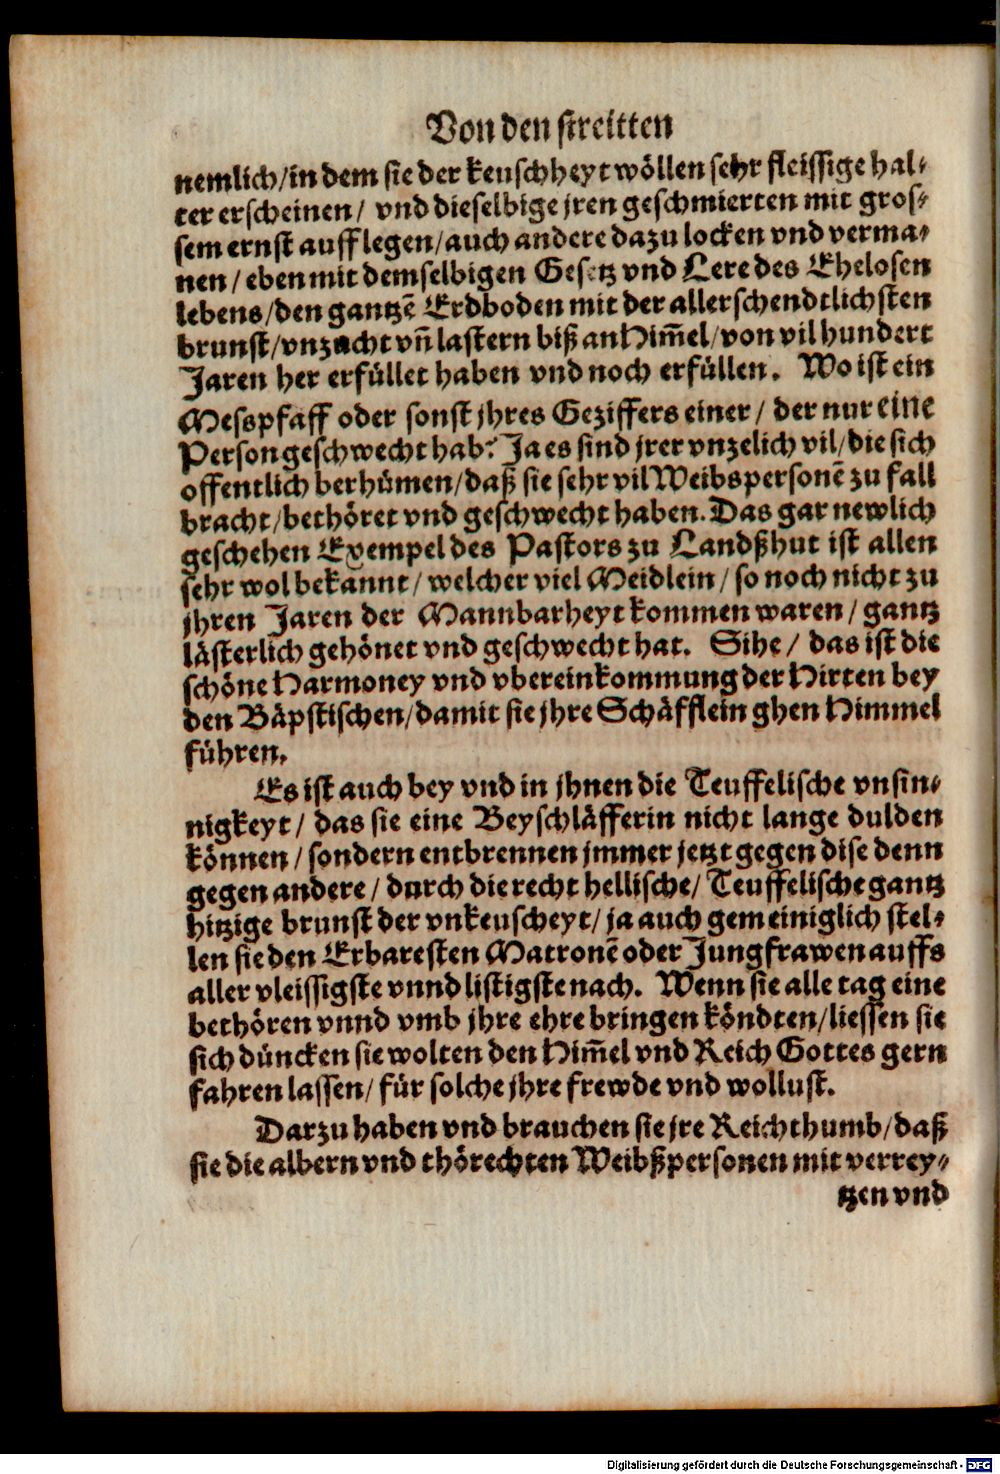 Von den streitten
nemlich/in dem sie der keuschheyt wöllen sehr fleissige hal⸗
ter erscheinen/ vnd dieselbige jren geschmierten mit gros⸗
sem ernst aufflegen/auch andere dazu locken vnd verma⸗
nen/ eben mit demselbigen Gesetz vnd Lere des Ehelosen
lebens/den gantzē Erdboden mit der allerschendtlichsten
brunst/vnzucht vn̄ lastern biß an Him̄el/von vil hundert
Jaren her erfüllet haben vnd noch erfüllen. Wo ist ein
Messpfaff oder sonst jhres Geziffers einer/ der nur eine
Person geschwecht hab? Ja es sind jrer vnzelich vil/die sich
offentlich berhümen/daß sie sehr vil Weibspersonē zu fall
bracht/bethöret vnd geschwecht haben. Das gar newlich
geschehen Exempel des Pastors zu Landßhut ist allen
sehr wol bekannt/ welcher viel Meidlein/ so noch nicht zu
jhren Jaren der Mannbarheyt kommen waren/ gantz
lästerlich gehönet vnd geschwecht hat. Sihe/ das ist die
schöne Harmoney vnd vbereinkommung der Hirten bey
den Bäpstischen/damit sie jhre Schäfflein ghen Himmel
führen.
Es ist auch bey vnd in jhnen die Teuffelische vnsin⸗
nigkeyt/ das sie eine Beyschläfferin nicht lange dulden
können/ sondern entbrennen jmmer jetzt gegen dise denn
gegen andere/ durch die recht hellische/ Teuffelische gantz
hitzige brunst der vnkeuscheyt/ ja auch gemeiniglich stel⸗
len sie den Erbaresten Matronē oder Jungfrawen auffs
aller vleissigste vnnd listigste nach. Wenn sie alle tag eine
bethören vnnd vmb jhre ehre bringen köndten/liessen sie
sich düncken sie wolten den Him̄el vnd Reich Gottes gern
fahren lassen/ für solche jhre frewde vnd wollust.
Darzu haben vnd brauchen sie jre Reichthumb/daß
sie die albern vnd thörechten Weibßpersonen mit verrey⸗
tzen vnd
Digitalisierung gefördert durch die Deutsche Forschungsgemeinschaft - DFG